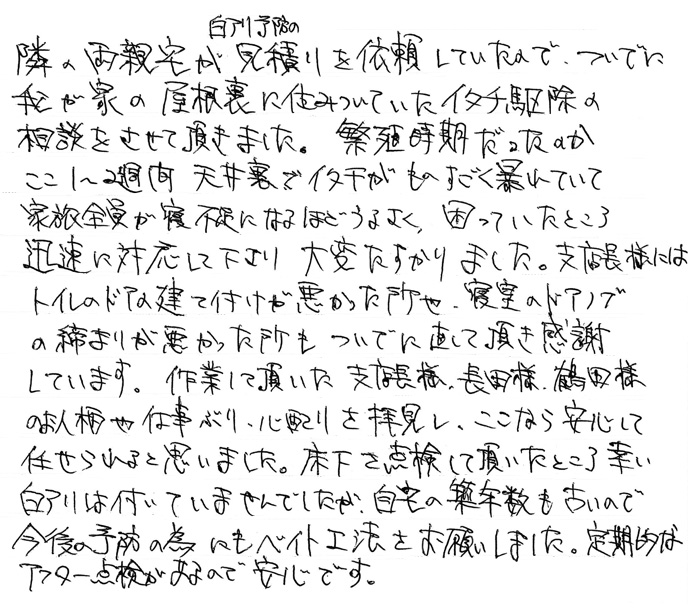 白アリ予防の
隣の両親宅が見積りを依頼していたので、ついでに
私が家の屋根裏に住みついていたイタチ駆除の
相談をさせて頂きました。繁殖時期だったのか
ここ1~2週間 天井裏でイタチがものすごく暴れていて
家族全員が寝不足になるほどうるさく、困っていたところ
迅速に対応して下さり 大変たすかりました。支店長様には
トイレのドアの建て付けが悪かった所や、寝室のドアノブ
の締まりが悪かった所も ついでに直して頂き感謝
しています。作業して頂いた支店長様、長田様、鶴田様
のお人柄や仕事ぶり、心配りを拝見し、ここなら安心して
任せられると思いました。床下を点検して頂いたところ幸い
白アリは付いていませんでしたが、自宅の築年数も古いので
今後の予防の為にもベイト工法をお願いしました。定期的な
アフター点検があるので安心です。